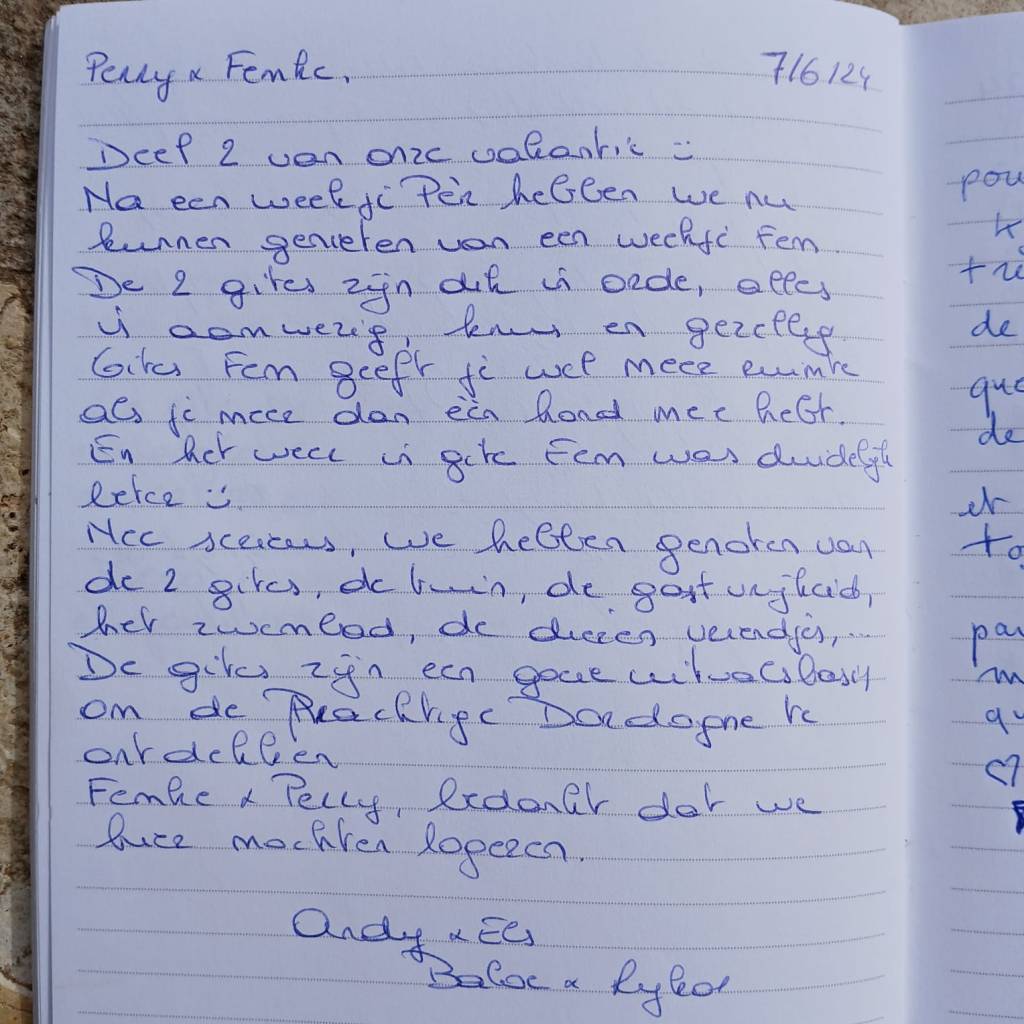 Perry & Femke, 7/6/24
Deel 2 van onze vakantie :)
Na een weekje Pèr hebben we nu
kunnen genieten van een weekje Fem.
De 2 gites zijn dik in orde, alles
is aanwezig, knus en gezellig.
Gites Fem geeft je wel meer ruimte
als je meer dan één hond mee hebt.
En het weer in gite Fem was duidelijk
beter :)
Nee serieus, we hebben genoten van
de 2 gites, de tuin, de gastvrijheid,
het zwembad, de dieren vriendjes,...
De gites zijn een goeie uitvalsbasis
om de Prachtige Dordogne te
ontdekken
Femke & Perry, bedankt dat we
hier mochten logeren.
Andy & Els
&
pou
tri
de
que
de
et
to
pa
m
qu